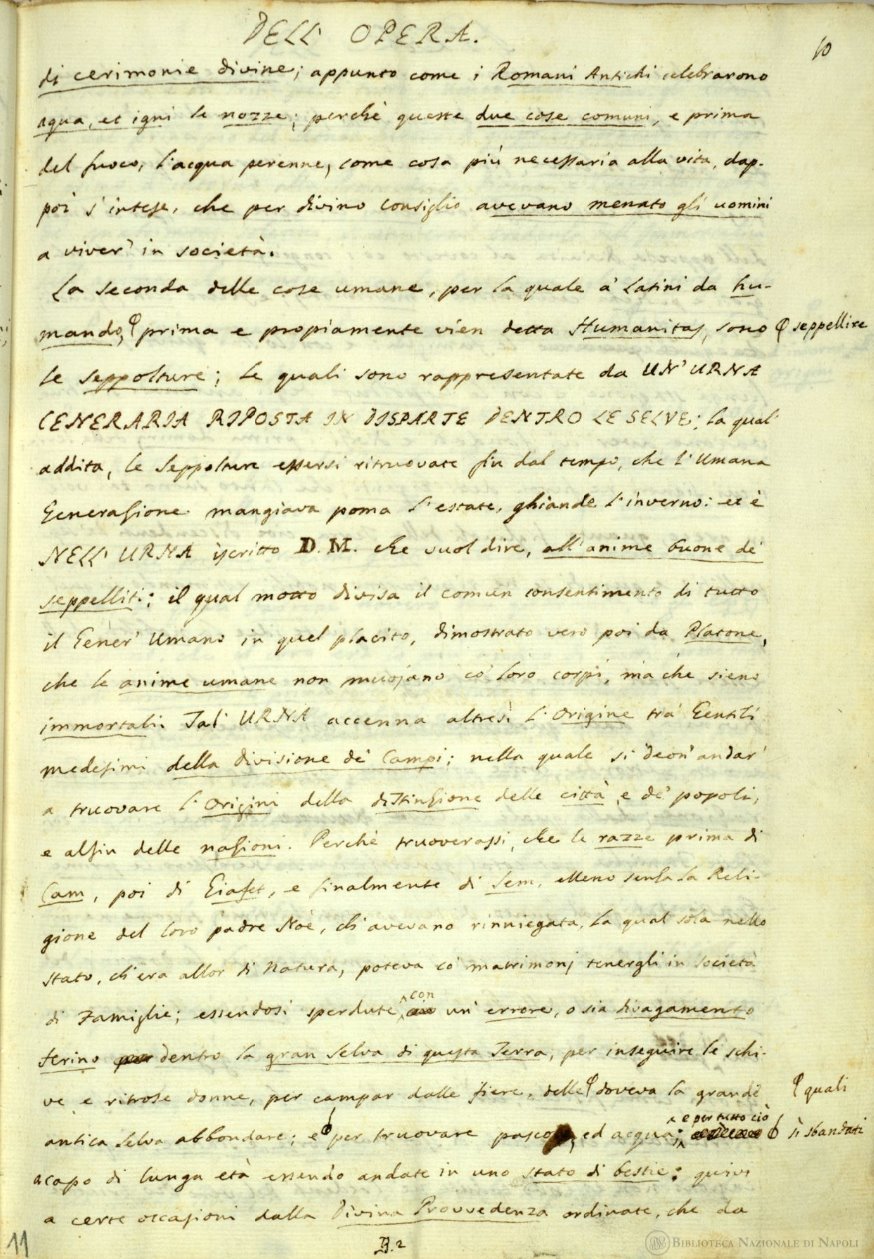 DELL' OPERA.
10
di cerimonie divine; appunto come i Romani Antichi celebrarono
aqua, et igni le nozze; perchè queste due cose comuni, e prima
del fuoco, l'acqua perenne, come cosa più necessaria alla vita, dap-
poi s'intese, che per divino consiglio avevano menato gli uomini
a viver' in società.
La seconda delle cose umane, per la quale a' Latini da hu-
mando, φ prima e propiamente vien detta Humanitas, sono
φ seppellire
le seppolture; le quali sono rappresentate da UN'URNA
CENERARIA RIPOSTA IN DISPARTE DENTRO LE SELVE; la qual'
addita, le Seppolture essersi ritruovate fin dal tempo, che l'Umana
Generasione mangiava poma l'estate, ghiande l'inverno: et è
NELL' URNA iscritto D.M. che vuol dire, all'anime buone de'
seppelliti: il qual motto divisa il comun consentimento di tutto
il Gener' Umano in quel placito, dimostrato vero poi da Platone,
che le anime umane non muojano co' loro corpi, ma che sieno
immortali. Tal' URNA accenna altresì l'Origine tra' Gentili
medesimi della divisione de' Campi; nella quale si deon' andar'
a truovare l'Origini della distinsione delle città, e de' popoli,
e alfin delle nasioni. Perchè truoverassi, che le razze prima di
Cam, poi di Giafet, e finalmente di Sem, elleno sensa la Reli-
gione del loro padre Noè, ch'avevano rinniegata, la qual sola nello
stato, ch'era allor di Natura, poteva co' matrimonj tenergli in società
di Famiglie; essendosi sperdute con un' errore, o sia divagamento
ferino dentro la gran Selva di questa Terra, per inseguire le schi-
ve e ritrose donne, per campar dalle fiere, delle φ doveva la grande
φ quali
antica Selva abbondare; e per truovare pascolo, ed acqua; e per tutto ciò
sì sbandati
acapo di lunga età essendo andate in uno stato di bestie: quivi
a certe occasioni dalla Divina Provvedenza ordinate, che da
B 2
11
BIBLIOTECA NAZIONALE DI NAPOLI